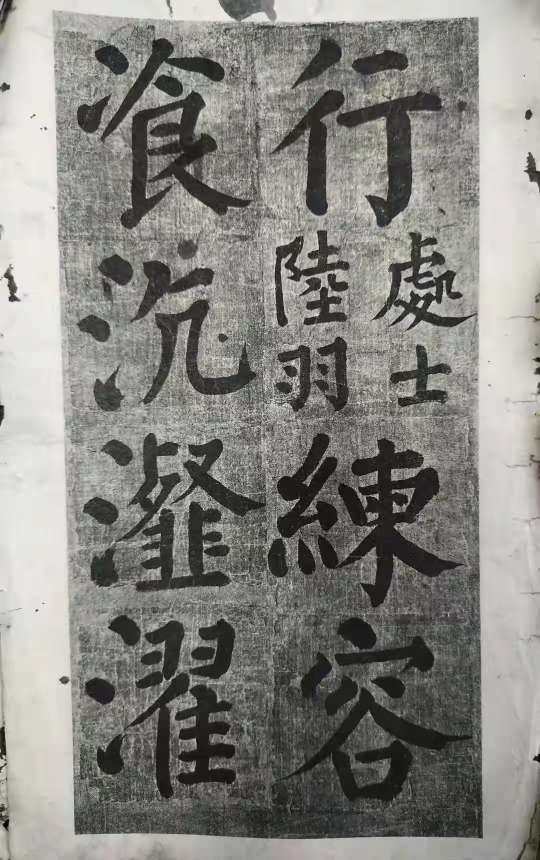 行
處士
陸羽
練容
飡沆瀣濯